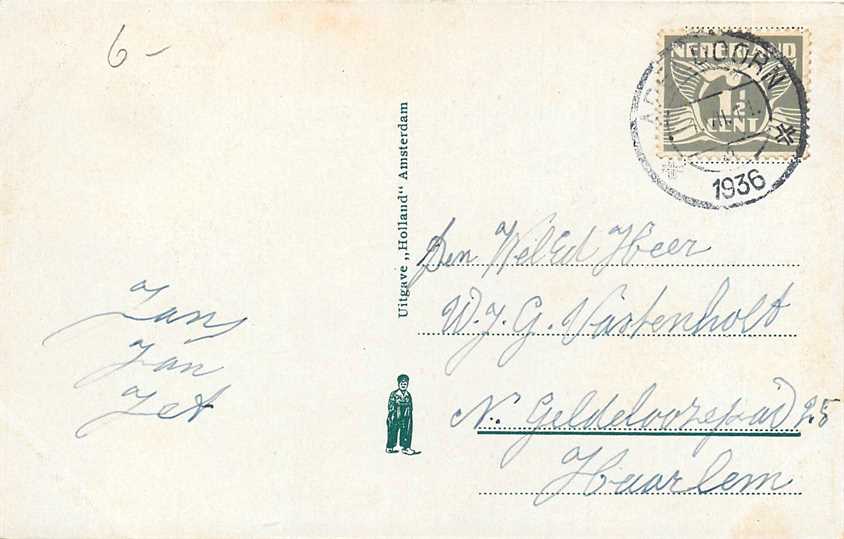 6-
NEDERLAND
1½
CENT
APELDOORN
1936
Uitgave „Holland" Amsterdam
Den WelEd Heer
W.J.G. Vastenholt
N. Geldeloozepad 25
Haarlem
Jans
Jan
Jet